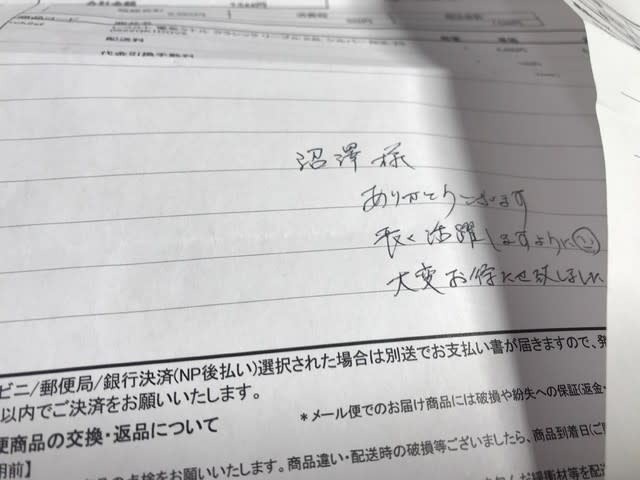 合計金額
配送料
代金引換手数料
沼澤様
ありがとうございます
長く活躍しますように
大変お待たせ致しました
ビニ/郵便局/銀行決済(NP後払い)選択された場合は別送でお支払い書が届きますので、発
以内でご決済をお願いいたします。
*メール便でのお届け商品には破損や紛失への保証(返金・
便商品の交換・返品について
用前】
の点検をお願いいたします。商品違い・配送時の破損等ございましたら、商品到着日(ご